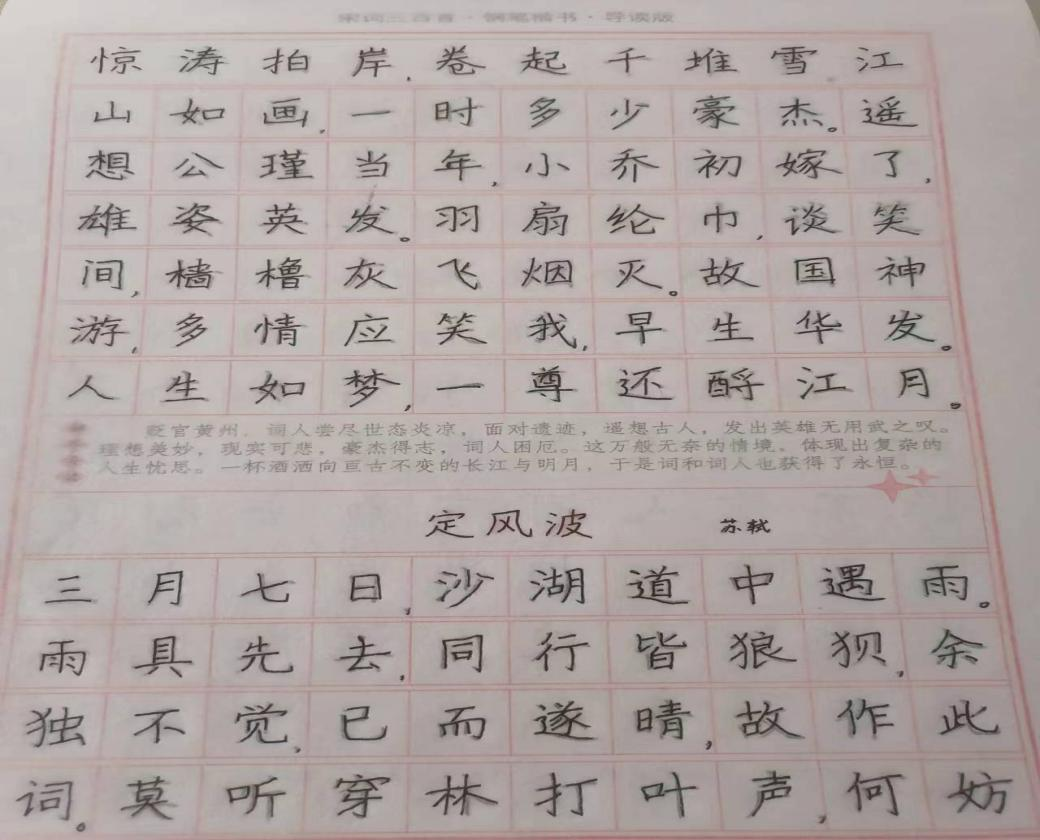 宋词三百首·钢笔楷书·导读版
惊涛拍岸，卷起千堆雪。江
山如画，一时多少豪杰。遥
想公瑾当年，小乔初嫁了，
雄姿英发。羽扇纶巾，谈笑
间，樯橹灰飞烟灭。故国神
游，多情应笑我，早生华发。
人生如梦，一尊还酹江月。
贬官黄州，词人尝尽世态炎凉，面对遗迹，遥想古人，发出英雄无用武之叹。
理想美妙，现实可悲，豪杰得志，词人困厄。这万般无奈的情境，体现出复杂的
人生忧思。一杯酒洒向亘古不变的长江与明月，于是词和词人也获得了永恒。
定风波 苏轼
三月七日，沙湖道中遇雨。
雨具先去，同行皆狼狈，余
独不觉，已而遂晴，故作此
词。莫听穿林打叶声，何妨